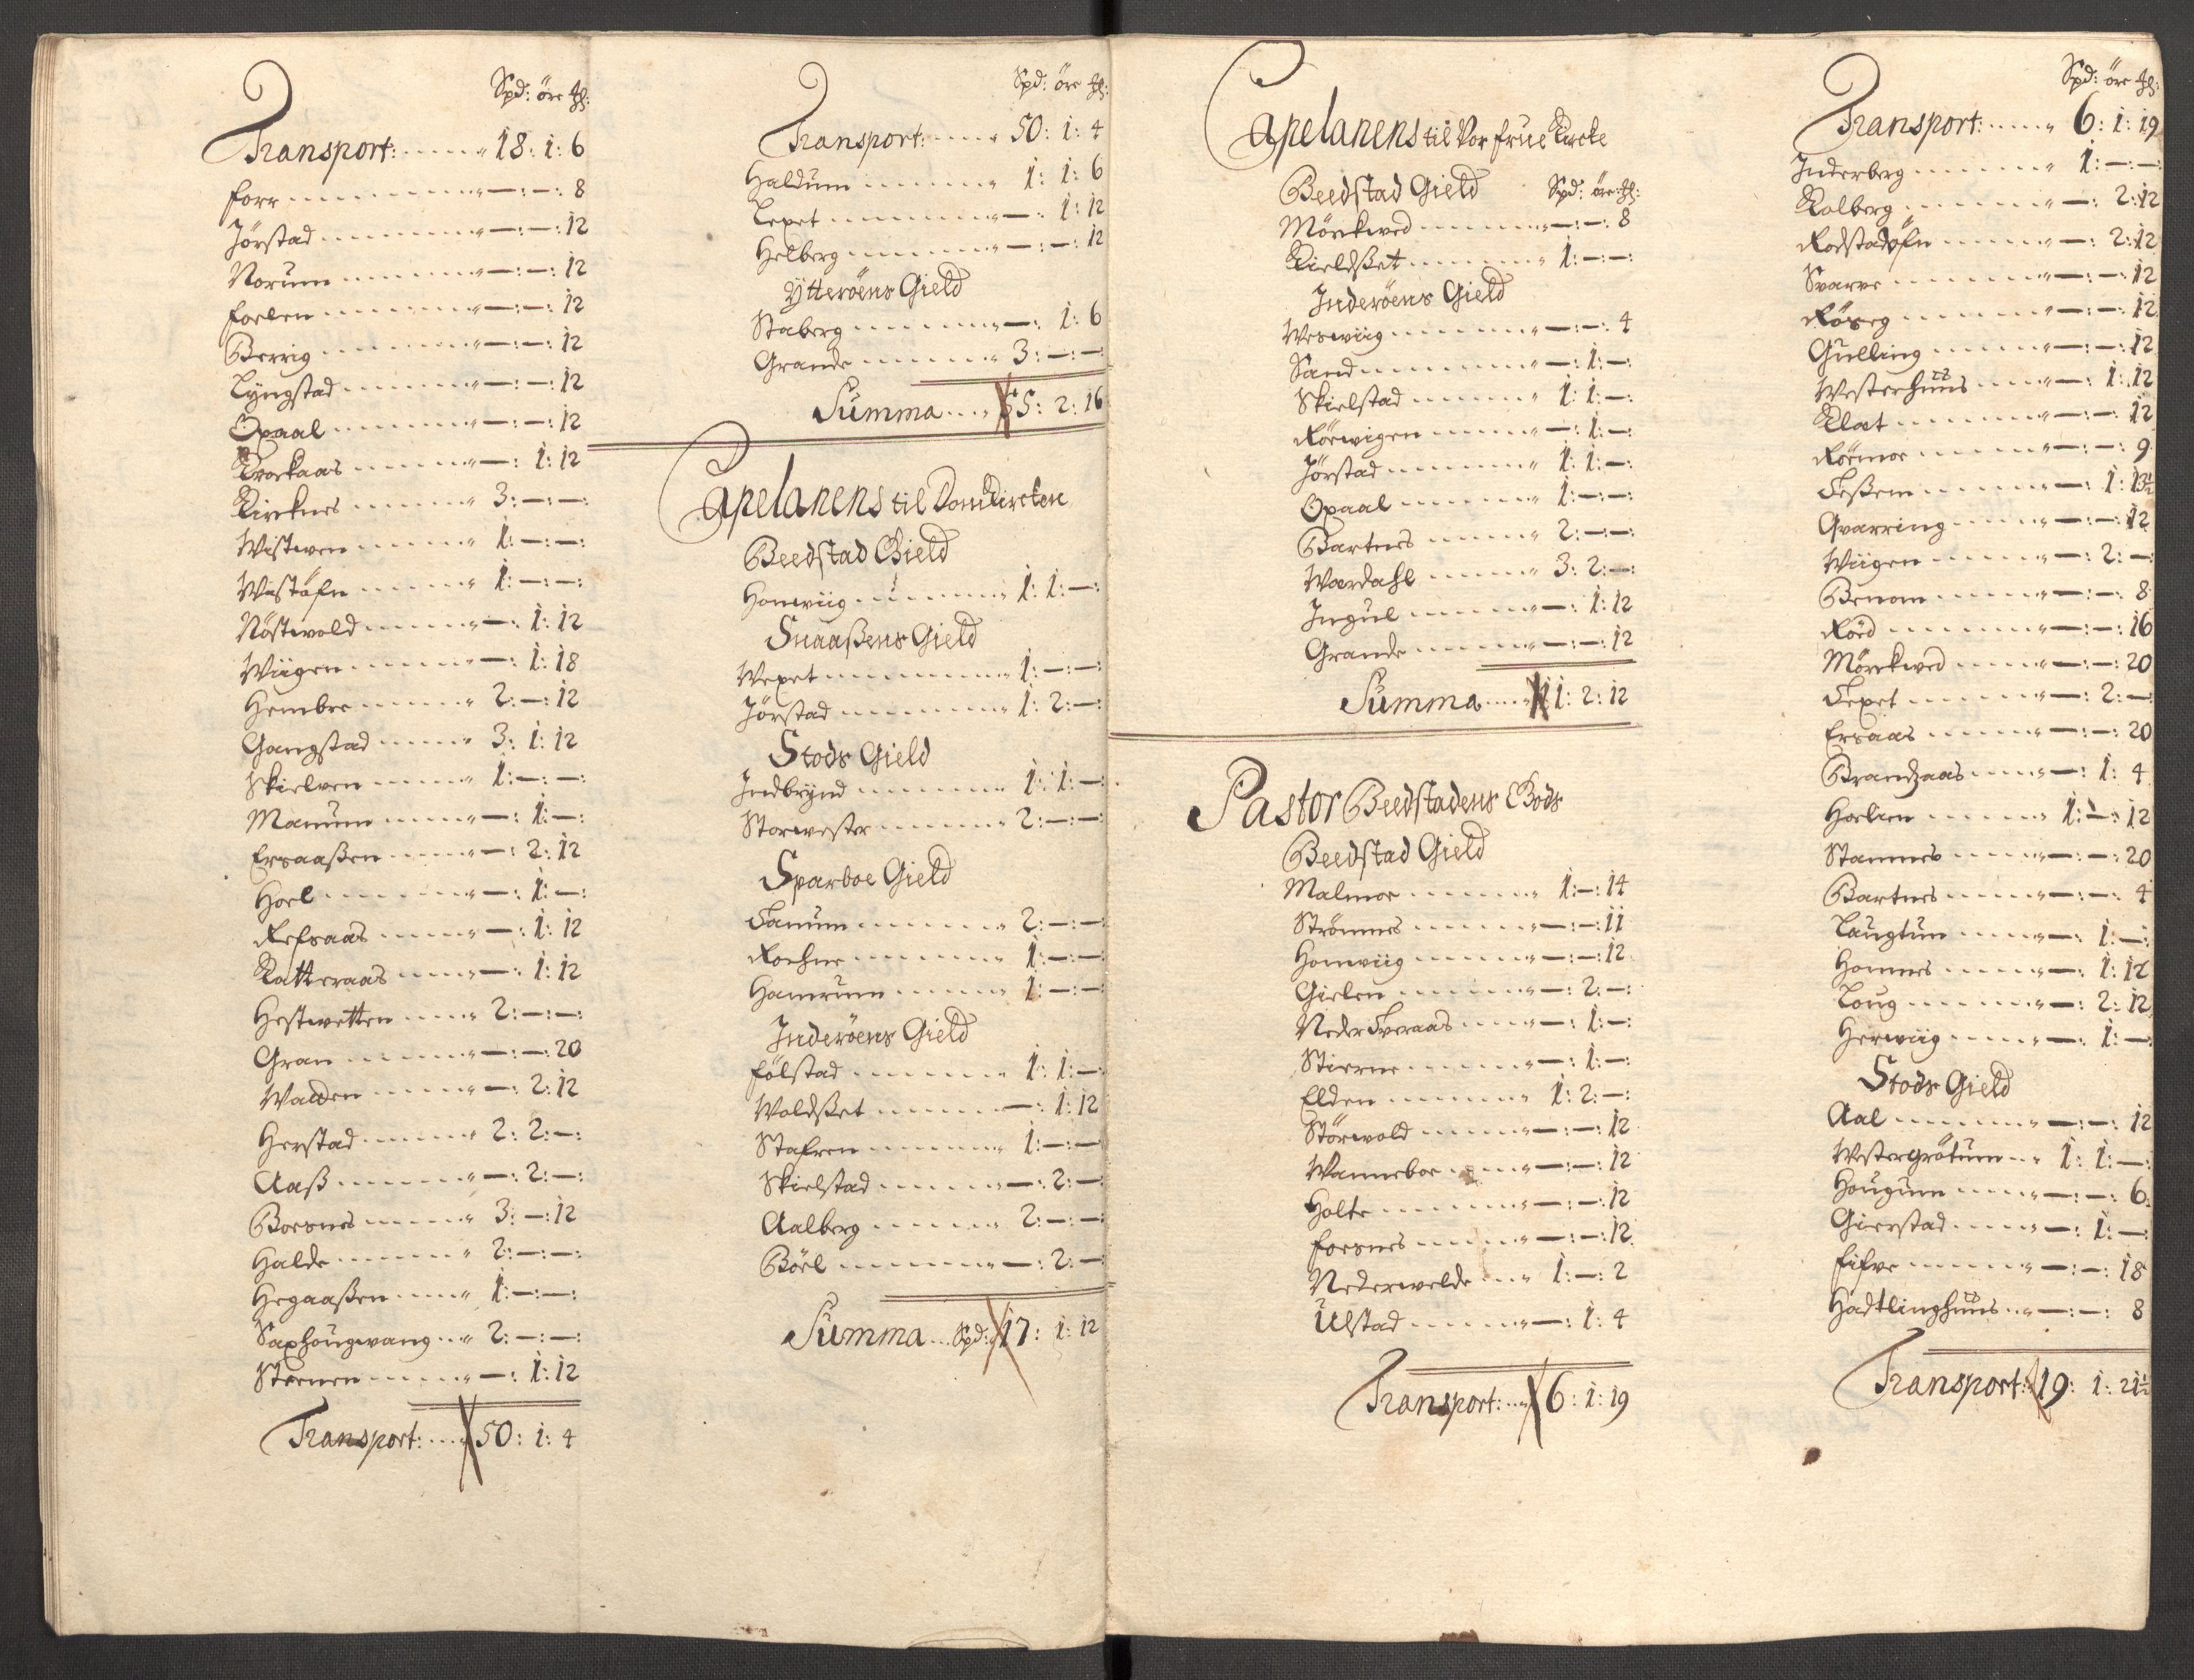 Spd: öre ₰:
Transport: 18: 1: 6
Forr —:—: 8
Jörstad —:—: 12
Norum —:—: 12
Foelen —:—: 12
Berrig —:—: 12
Lyngstad —:—: 12
Opaal —:—: 12
Krockaas —: 1: 12
Kircknes 3:—:—:
Wistven 1:—:—:
Wistöfn 1:—:—:
Nöstvold —: 1: 12
Wiigen —: 1: 18
Hembre 2:—: 12
Gangstad 3: 1: 12
Skielven 1:—:—:
Manum —: 1:—:
Ersaaßen —: 2: 12
Hoel —: 1:—:
Refsaas —: 1: 12
Katteraas —: 1: 12
Hestvetten 2:—:—:
Gran —:—: 20
Walden —: 2: 12
Herstad 2: 2:—:
Aaß —: 2:—:
Boesnes 3:—: 12
Halde 2:—:—:
Hegaaßen 1:—:—:
Saxhougvang 2:—:—:
Steenen —: 1: 12
Transport: 50: 1: 4
Spd: öre ₰:
Transport: 50: 1: 4
Haldum 1: 1: 6
Lexet —: 1: 12
Helberg —:—: 12
Ytteröens Gield
Staberg —: 1: 6
Grande 3:—:—
Summa 55: 2: 16
Capelanens til Domkircken
Beedstad Gield
Homviig 1: 1:—:
Snaaßens Gield
Vexet 1:—:—:
Jörstad 1: 2:—:
Stods Gield
Indbrynd 1: 1:—:
Storvester 2:—:—:
Sparboe Gield
Fanum 2:—:—:
Roehne 1:—:—:
Hamrum 1:—:—:
Inderöens Gield
Fölstad 1: 1:—:
Woldset —: 1: 12
Stafren 1:—:—
Skielstad —: 2:—
Aalberg 2:—:—:
Böel —: 2:—
Summa Spd: 17: 1: 12
Capelanens til Vor Frue Kircke
Beedstad Gield Spd: öre ₰:
Mörckved —:—: 8
Kieldßet 1:—:—:
Inderöens Gield
Weswiig —:—: 4
Sand —: 1:—:
Skielstad 1: 1:—:
Rörvigen —: 1:—:
Jörstad 1: 1:—:
Opaal 1:—:—:
Bartnes 2:—:—:
Wardahl 3: 2:—:
Ingul —: 1: 12
Grande —:—: 12
Summa 11: 2: 12
Pastor Beedstadens Bods
Beedstad Gield
Malmoe 1:—: 14
Strömnes —:—: 11
Homviig —:—: 12
Gielen —: 2:—:
Neder Tveraas —: 1:—:
Stierne —: 1:—:
Elden 1: 2:—:
Störvold —:—: 12
Wanneboe —:—: 12
Holte —:—: 12
Foesnes —:—: 12
Nedervelde 1:—: 2
Ulstad —: 1: 4
Transport: 6: 1: 19
Spd: öre ₰:
Transport: 6: 1: 19
Inderberg 1:—:—:
Kolberg —: 2: 12
Rodstadöfn —: 2: 12
Svarve —:—: 12
Röseg —:—: 12
Gulling —:—: 12
Westerhuus —: 1: 12
Klat —:—: 12
Röemoe —:—: 9
Feßem —: 1: 13½
Qvarring —:—: 12
Wiigen —: 2:—
Benom —:—: 8
Röed —:—: 16
Mörckved —:—: 20
Lexet —: 2:—
Ersaas —:—: 20
Brandzaas —: 1: 4
Hoelien 1:—: 12
Stamnes —:—: 20
Bartnes —:—: 4
Laugtun —: 1:—:
Homnes —: 1: 12
Loug —: 2: 12
Herviig —: 1:—
Stods Gield
Aal —:—: 12
Westergrötum 1: 1:—:
Hougum —:—: 6
Gierstad —: 1:—
Fifve —:—: 18
Hadtlinghuus —:—: 8
Transport: 19: 1: 21½